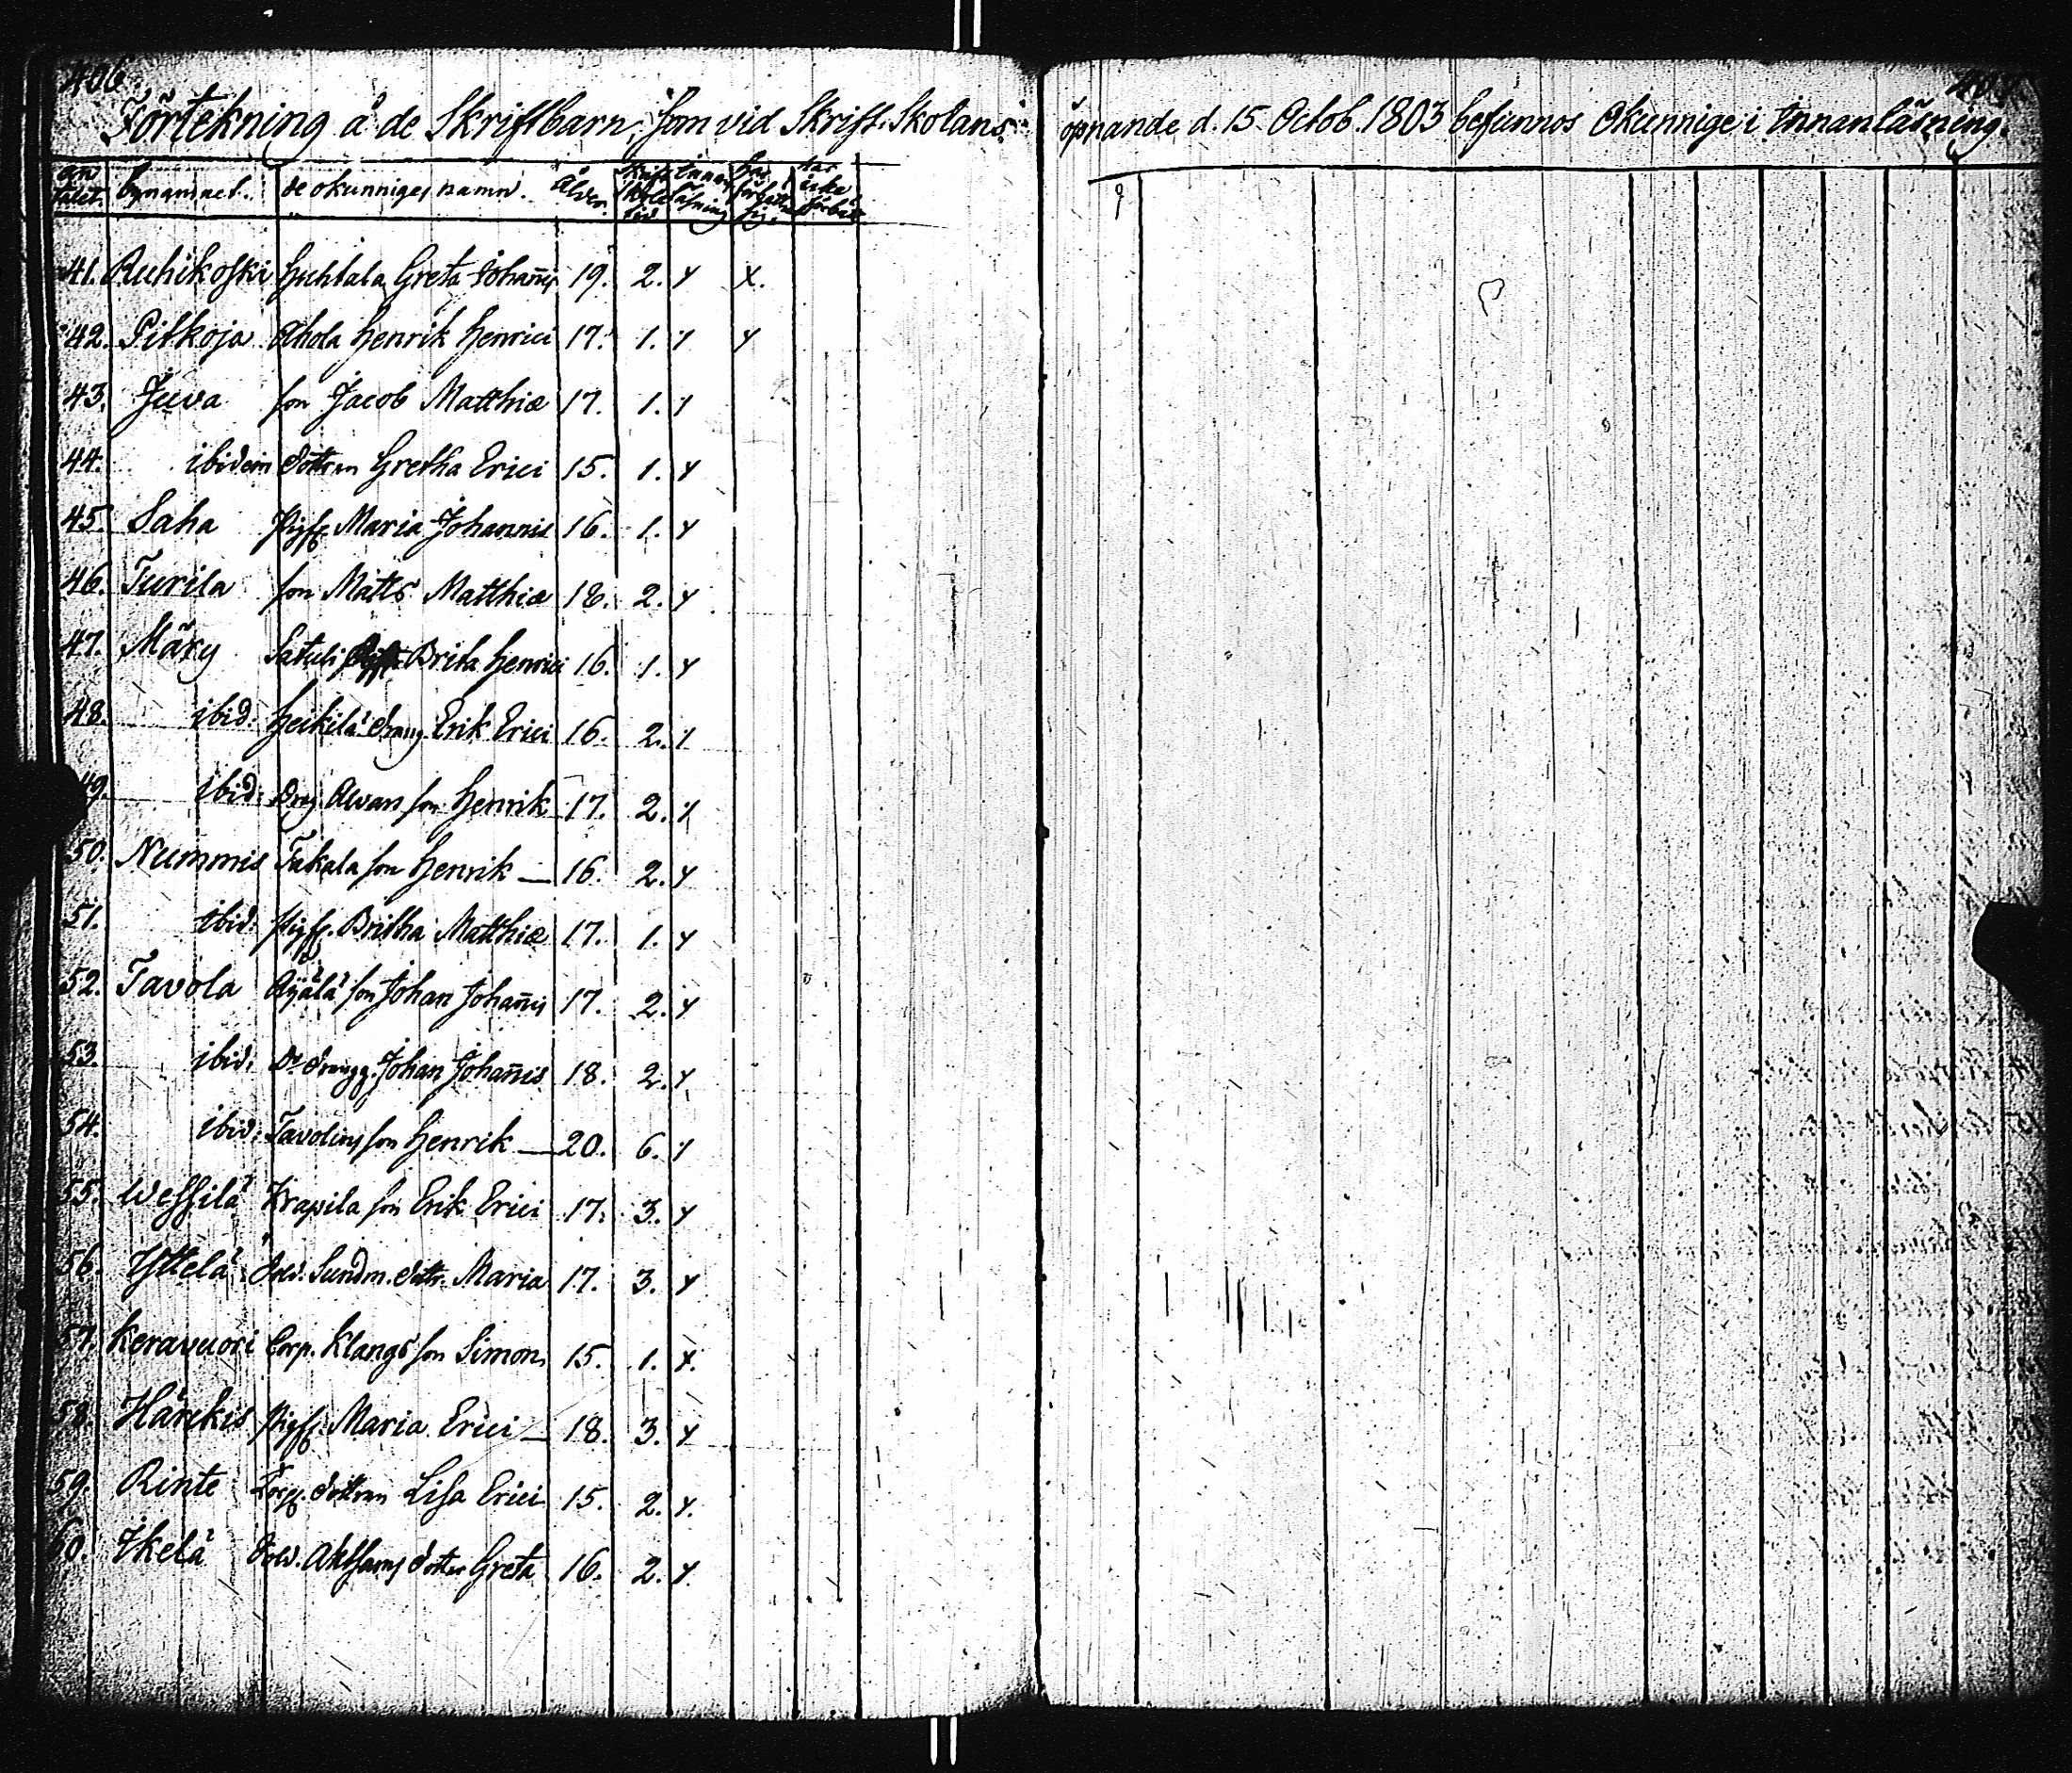 406.
Förtekning å de Skriftbarn, som vid Skrift-Skolans öpnande d. 15 Octob. 1803 befunnos Okunnige i Innanläsning.
an talet. bynamnet. de okunniges namn. Ålder. Skrift Skole tid Innan läsning har förbättrat sig. har icke förbätt
41. Ruhikoski Huhtala Greta Johan̄is 19. 2. x x.
42. Pitkoja Ahola Henrik Henrici 17. 1. x x
43. Juva son Jacob Matthiæ 17. 1. x
44. ibidem dottren Gretha Erici 15. 1. x
45. Saha Pigf. Maria Johannis 16. 1. x
46. Turila son Matts Matthiæ 18. 2. x
47. Märy Satuli Brita Henrici 16. 1. x
48. ibid: Heikilä dräng Erik Erici 16. 2. x
49. ibid: drg Alvan son Henrik 17. 2. x
50. Nummis Takala son Henrik — 16. 2. x
51. ibid: Pigf. Britha Matthiæ 17. 1. x
52. Tavola Äijälä son Johan Johan̄is 17. 2. x
53. ibid: Do drängg. Johan Johan̄is 18. 2. x
54. ibid: Tavolins son Henrik — 20. 6. x
55. Wessilä Krapila son Erik Erici 17. 3. x
56. Yttelä Sold. Sundm. dottr. Maria 17. 3. x
57. Keravuori Corp. Klangs son Simon 15. 1. x.
58. Härckis Pigf. Maria Erici — 18. 3. x
59. Rinte Torp. dottren Lisa Erici 15. 2. x.
60. Ikelä Sold. dotter Greta 16. 2. x.